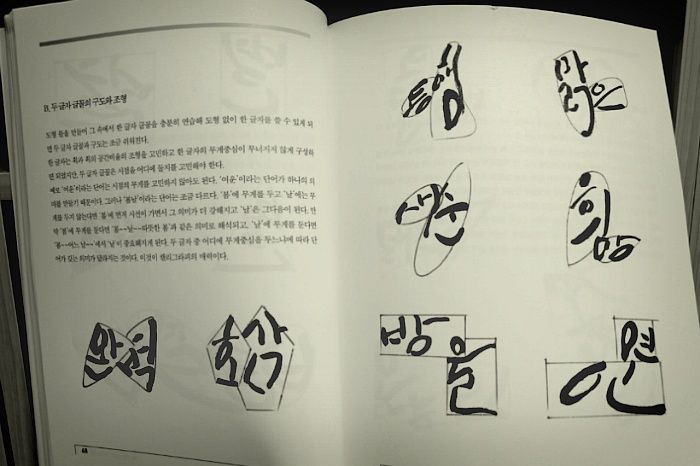 B. 두 글자 글꼴의 구도와 조형
도형 틀을 만들어 그 속에서 한 글자 글꼴을 충분히 연습해 도형 없이 한 글자를 쓸 수 있게 되
면 두 글자 글꼴과 구도는 조금 쉬워진다.
한 글자는 획과 획의 공간비율의 조형을 고민하고 한 글자의 무게중심이 무너지지 않게 구성하
면 되었지만, 두 글자 글꼴은 시점을 어디에 둘지를 고민해야 한다.
예로 '여운'이라는 단어는 시점의 무게를 고민하지 않아도 된다. '여운'이라는 단어가 하나의 의
미를 만들기 때문이다. 그러나 '봄날'이라는 단어는 조금 다르다. '봄'에 무게를 두고 '날'에는 무
게를 두지 않는다면 '봄'에 먼저 시선이 가면서 그 의미가 더 강해지고 '날'은 그 다음이 된다. 만
약 '봄'에 무게를 둔다면 '봄~~날~~따뜻한 봄'과 같은 의미로 해석되고, '날'에 무게를 둔다면
'봄~~어느 날~~'에서 '날'이 중요해지게 된다. 두 글자 중 어디에 무게중심을 두느냐에 따라 단
어가 갖는 의미가 달라지는 것이다. 이것이 캘리그라피의 매력이다.
완척
호각
68
통섭
말인
새순
힘
방울
연